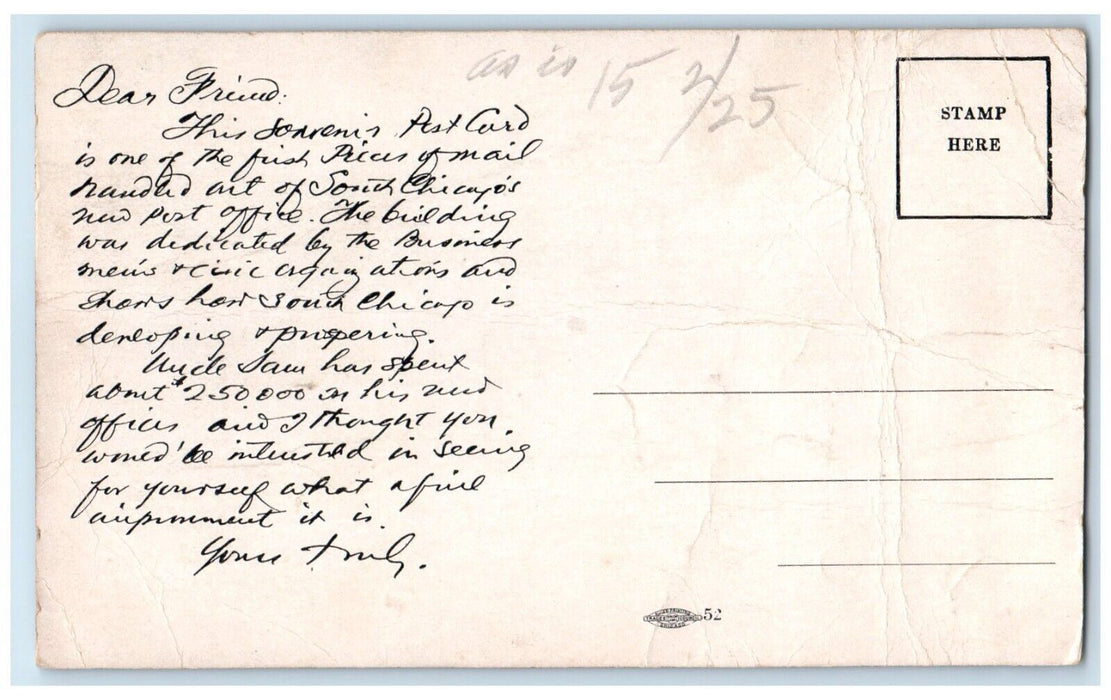 as is 15 2/25
STAMP
HERE
Dear Friend:
This souvenir Post Card
is one of the first Pieces of mail
handed out of South Chicago's
new post office. The building
was dedicated by the Business
men's & civic organizations and
shows how South Chicago is
developing & prospering.
Uncle Sam has spent
about $250000 on his new
offices and I thought you
would be interested in seeing
for yourself what a fine
improvement it is.
Yours truly.
52